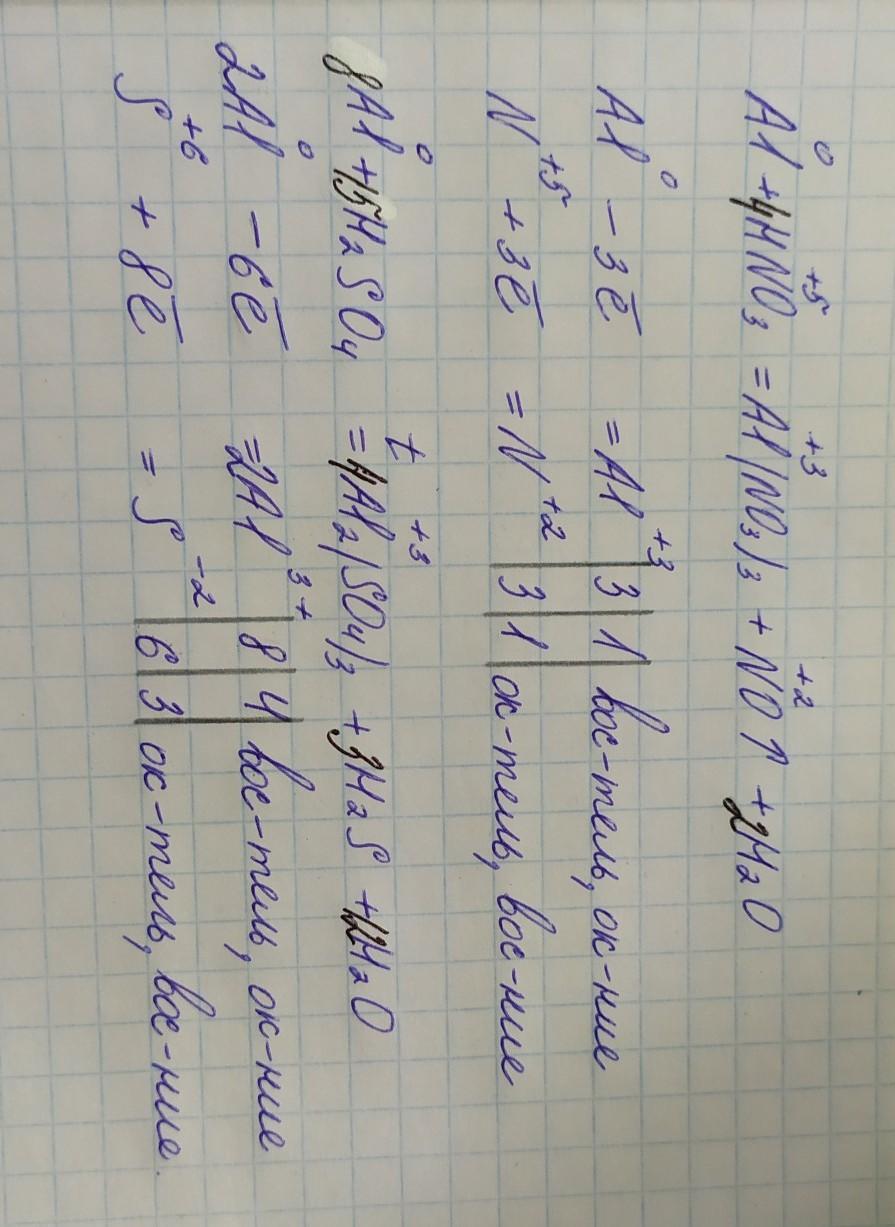 Al⁰ + 4HN⁺⁵O₃ = Al⁺³(NO₃)₃ + N⁺²O↑ + 2H₂O
Al⁰ − 3ē = Al⁺³ | 3 | 1 | вос-тель, ок-ние
N⁺⁵ + 3ē = N⁺² | 3 | 1 | ок-тель, вос-ние
8Al⁰ + 15H₂SO₄ =ᵗ 4Al₂⁺³(SO₄)₃ + 3H₂S + 12H₂O
2Al⁰ − 6ē = 2Al³⁺ | 8 | 4 | вос-тель, ок-ние
S⁺⁶ + 8ē = S⁻² | 6 | 3 | ок-тель, вос-ние.